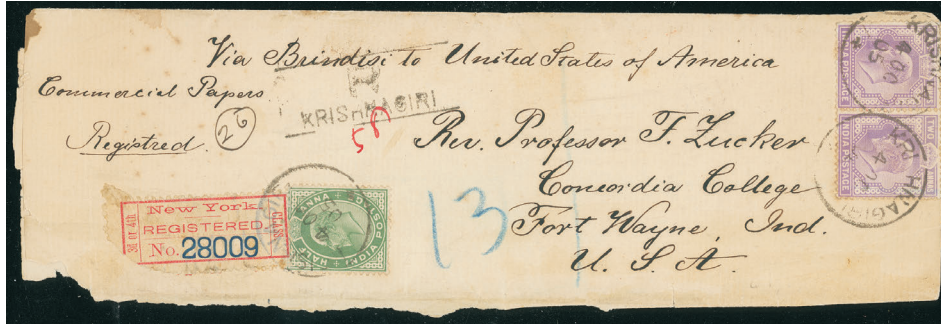 Via Brindisi to United States of America
Commercial Papers
Registred.
26
R
KRISHNAGIRI
50
Rev. Professor F. Zucker
Concordia College
Fort Wayne, Ind.
U. S. A.
13
New York
REGISTERED
No. 28009
3d or 4th
CLASS
HALF ANNA
INDIA POSTAGE
TWO A
INDIA POSTAGE
KRISHNAGIRI
4 OC
05